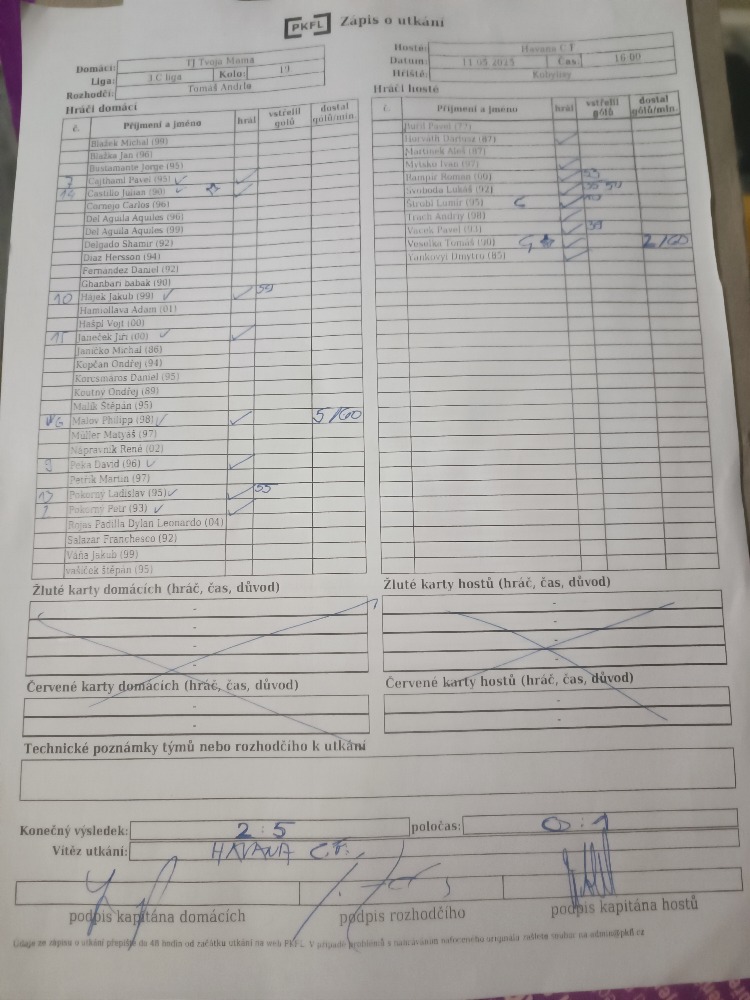 PKFL Zápis o utkání
Domácí: TJ Tvoja Mama
Liga: 3.C liga Kolo: 19
Rozhodčí: Tomáš Andrle
Hosté: Havana C.F.
Datum: 11.05.2025 Čas: 16:00
Hřiště: Kobylisy
Hráči domácí
č. Příjmení a jméno hrál vstřelil gólů dostal gólů/min.
Blažek Michal (99)
Blažka Jan (96)
Bustamante Jorge (95)
7 Cajthaml Pavel (93) ✓ ✓
14 Castillo Julian (90) ✓ ✓
Cornejo Carlos (96)
Del Aguila Aquiles (96)
Del Aguila Aquiles (99)
Delgado Shamir (92)
Diaz Hersson (94)
Fernández Daniel (92)
Ghanbari babak (90)
10 Hájek Jakub (99) ✓ ✓ 59
Hamidllava Adam (01)
Hašpl Vojt (00)
15 Janeček Jiří (00) ✓ ✓
Janičko Michal (86)
Kopčan Ondřej (94)
Korcsmáros Daniel (95)
Koutný Ondřej (89)
Malík Štěpán (95)
Malov Philipp (98) ✓ ✓ 5/60
Müller Matyáš (97)
Nápravník René (02)
9 Peka David (96) ✓ ✓
Petřík Martin (97)
13 Pokorný Ladislav (95) ✓ ✓ 55
Pokorný Petr (93) ✓ ✓
Rojas Padilla Dylan Leonardo (04)
Salazar Franchesco (92)
Váňa Jakub (99)
vašíček štěpán (95)
Hráči hosté
č. Příjmení a jméno hrál vstřelil gólů dostal gólů/min.
Horváth Dariusz (87) ✓
Martinek Aleš (87)
Mytsko Ivan (97) ✓
Rampír Roman (00) ✓
Svoboda Lukáš (92) ✓
Štrobl Lumír (95) ✓
Trach Andriy (98) ✓
Vacek Pavel (93) ✓ 39
Voselka Tomáš (90) G ✓ 2/60
Yankovyi Dmytro (85) ✓
Žluté karty domácích (hráč, čas, důvod)
-
-
-
-
-
Žluté karty hostů (hráč, čas, důvod)
-
-
-
-
-
Červené karty domácích (hráč, čas, důvod)
-
-
Červené karty hostů (hráč, čas, důvod)
-
-
Technické poznámky týmů nebo rozhodčího k utkání
Konečný výsledek: 2:5 poločas: 0:1
Vítěz utkání: HAVANA C.F.
podpis kapitána domácích podpis rozhodčího podpis kapitána hostů
Údaje ze zápisu o utkání přepište do 48 hodin od začátku utkání na web PKFL. V případě problémů s nahráváním nafoceného originálu zašlete soubor na admin@pkfl.cz